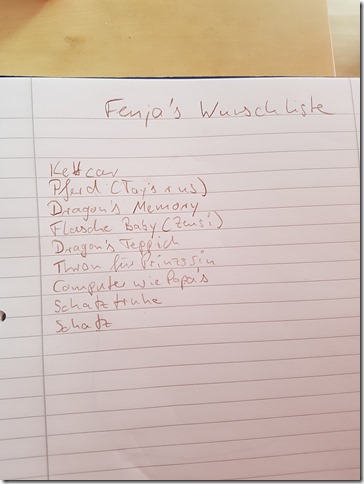 Fenja's Wunschliste
Kettcar
Pferd (Toy's r us)
Dragon's Memory
Flasche Baby (Zensi)
Dragon's Teppich
Thron für Prinzssin
Computer wie Papa's
Schatztruhe
Schatz